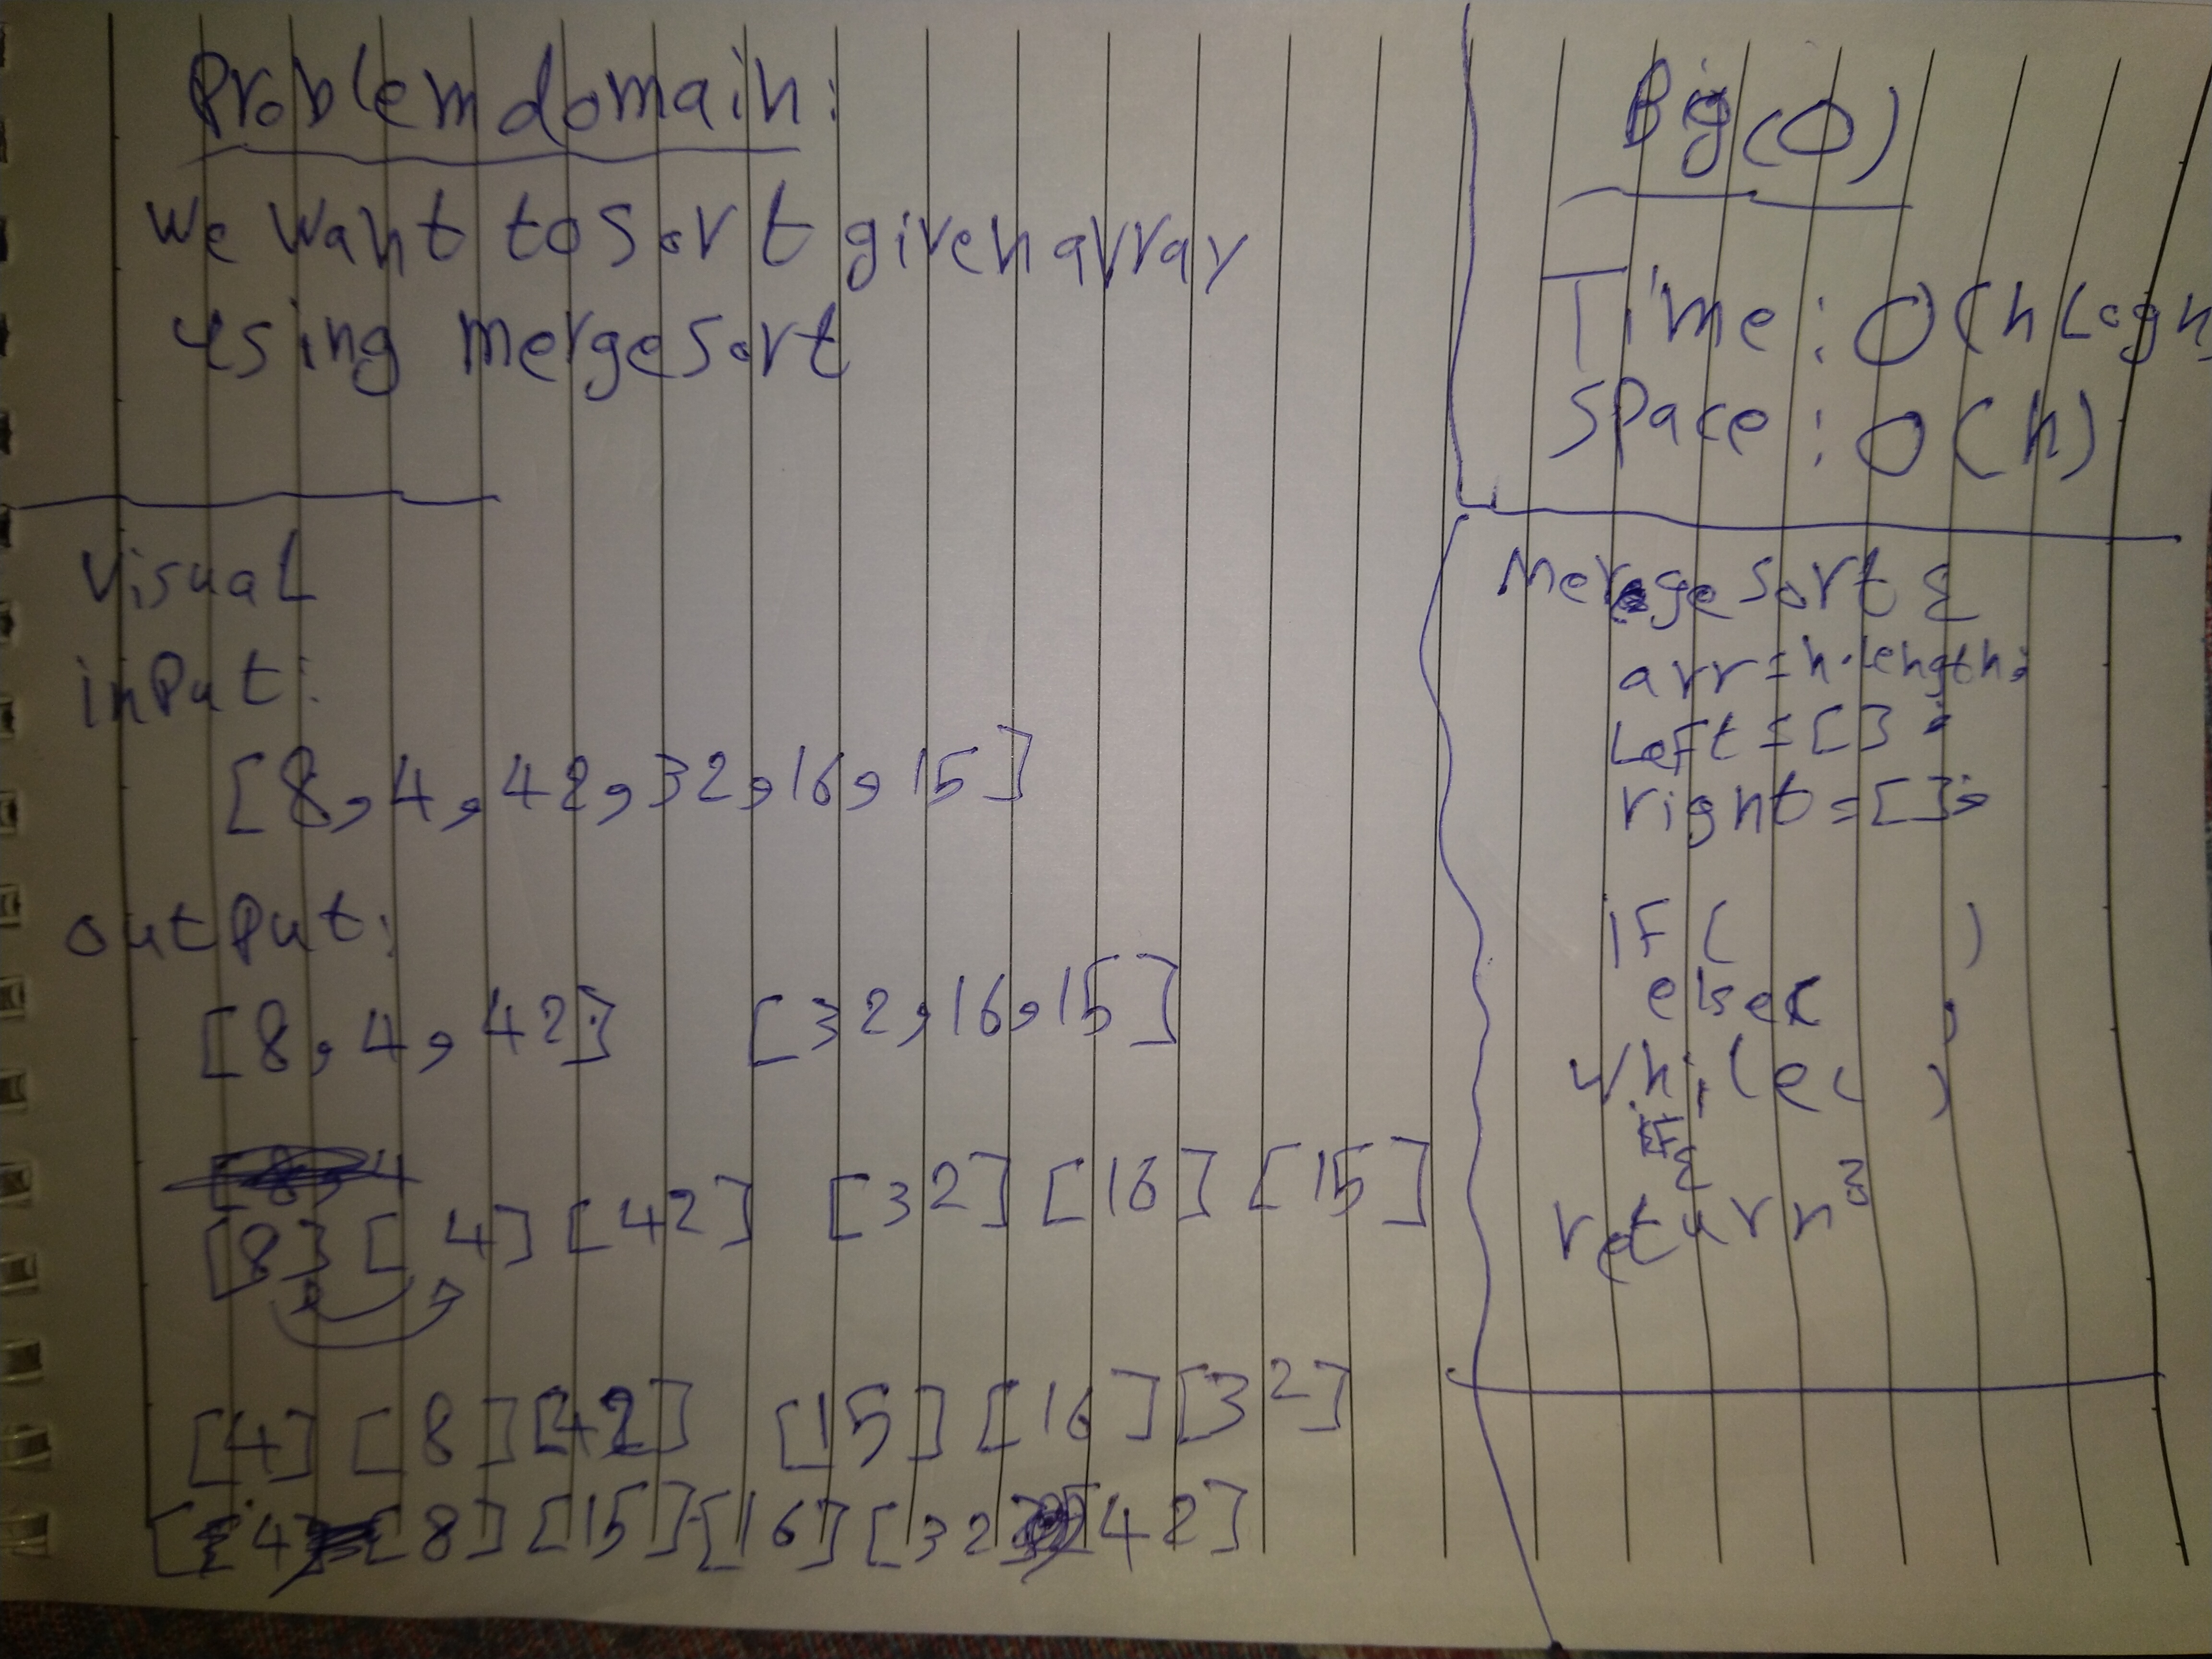 Problem domain:
we want to sort given array
using mergesort
Visual
input:
[8,4,42,32,16,15]
output:
[8,4,42] [32,16,15]
[8] [4] [42] [32] [16] [15]
[4] [8] [42] [15] [16] [32]
[4 [8] [15] [16] [32] [42]
Big (O)
Time: O(n Logn
Space: O(n)
Mergesort {
arr=n.length;
Left = [];
right = [];
if ( )
else
while( )
{
return }